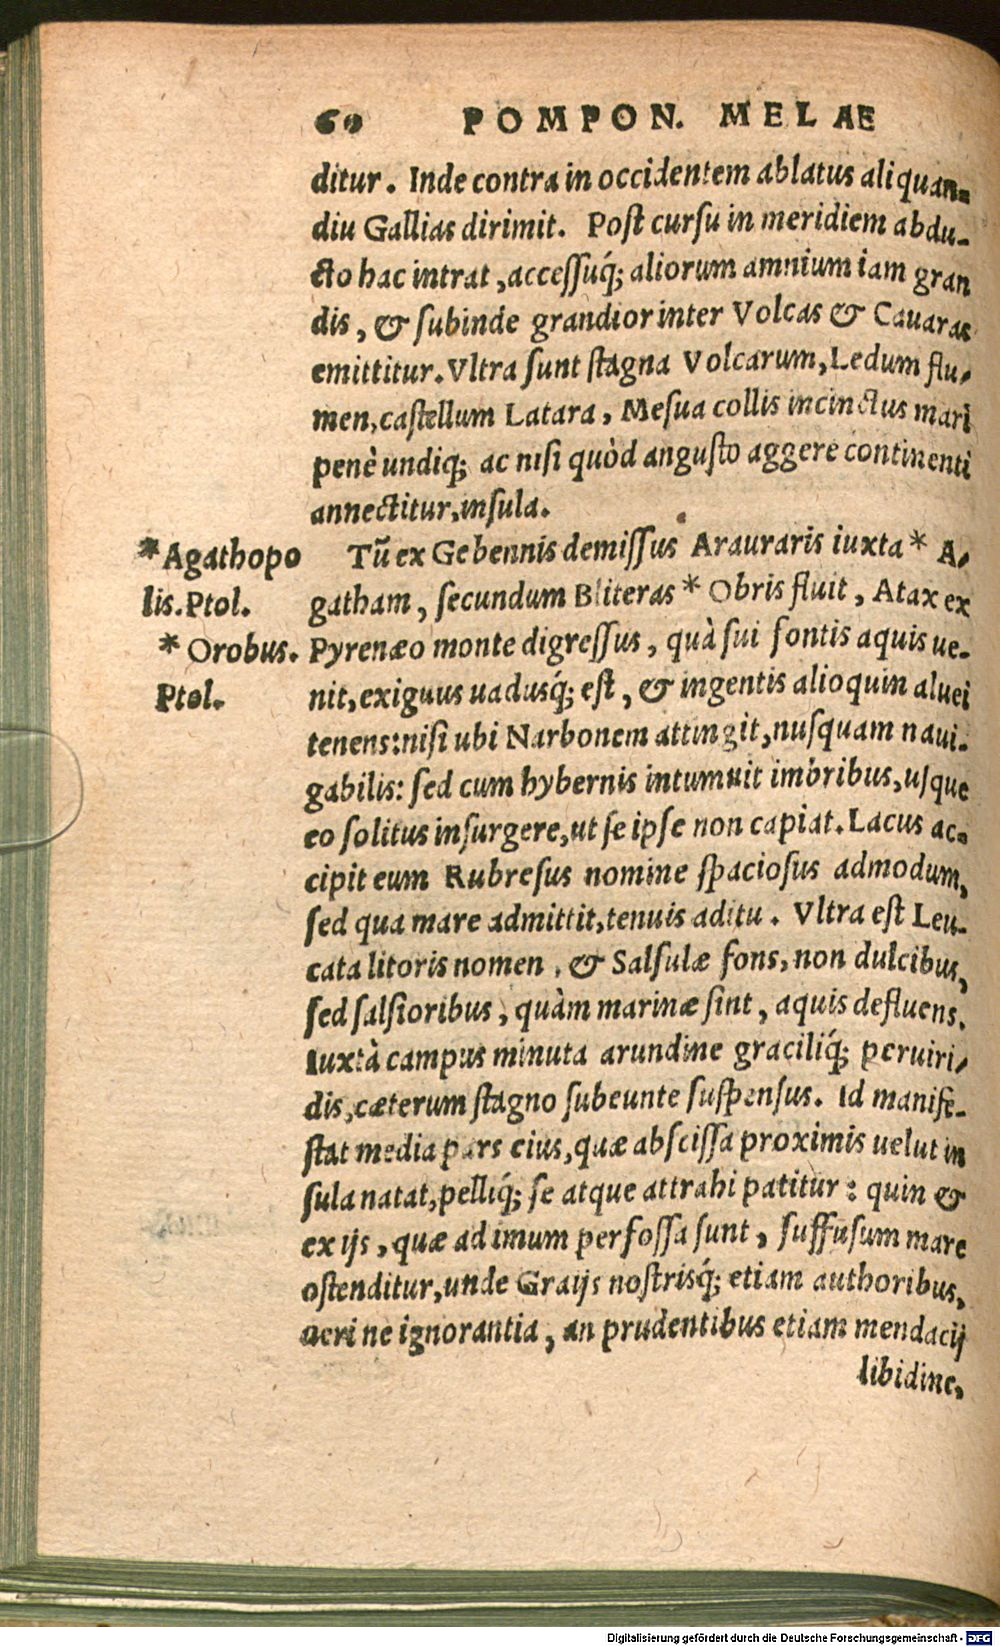 60 POMPON. MELAE
ditur. Inde contra in occidentem ablatus aliquan-
diu Gallias dirimit. Post cursu in meridiem abdu-
cto hac intrat, accessuq́; aliorum amnium iam gran
dis, & subinde grandior inter Volcas & Cauaras
emittitur. Vltra sunt stagna Volcarum, Ledum flu-
men, castellum Latara, Mesua collis incinctus mari
penè undiq; ac nisi quòd angusto aggere continenti
annectitur, insula.
Tū ex Gebennis demissus Arauraris iuxta * A-
gatham, secundum Bliteras * Obris fluit, Atax ex
Pyrenæo monte digressus, quà sui fontis aquis ue-
nit, exiguus uadusq́; est, & ingentis alioquin aluei
tenens: nisi ubi Narbonem attingit, nusquam naui-
gabilis: sed cum hybernis intumuit imbribus, usque
eo solitus insurgere, ut se ipse non capiat. Lacus ac-
cipit eum Rubresus nomine spaciosus admodum,
sed qua mare admittit, tenuis aditu. Vltra est Leu-
cata litoris nomen, & Salsulæ fons, non dulcibus,
sed salsioribus, quàm marinæ sint, aquis defluens.
Iuxtà campus minuta arundine graciliq́; peruiri-
dis, cæterum stagno subeunte suspensus. Id manife-
stat media pars eius, quæ abscissa proximis uelut in
sula natat, pelliq́; se atque attrahi patitur: quin &
ex ijs, quæ ad imum perfossa sunt, suffusum mare
ostenditur, unde Graijs nostrisq́; etiam authoribus,
ueri ne ignorantia, an prudentibus etiam mendacij
libidine,
*Agathopo
lis. Ptol.
* Orobus.
Ptol.
Digitalisierung gefördert durch die Deutsche Forschungsgemeinschaft - DFG